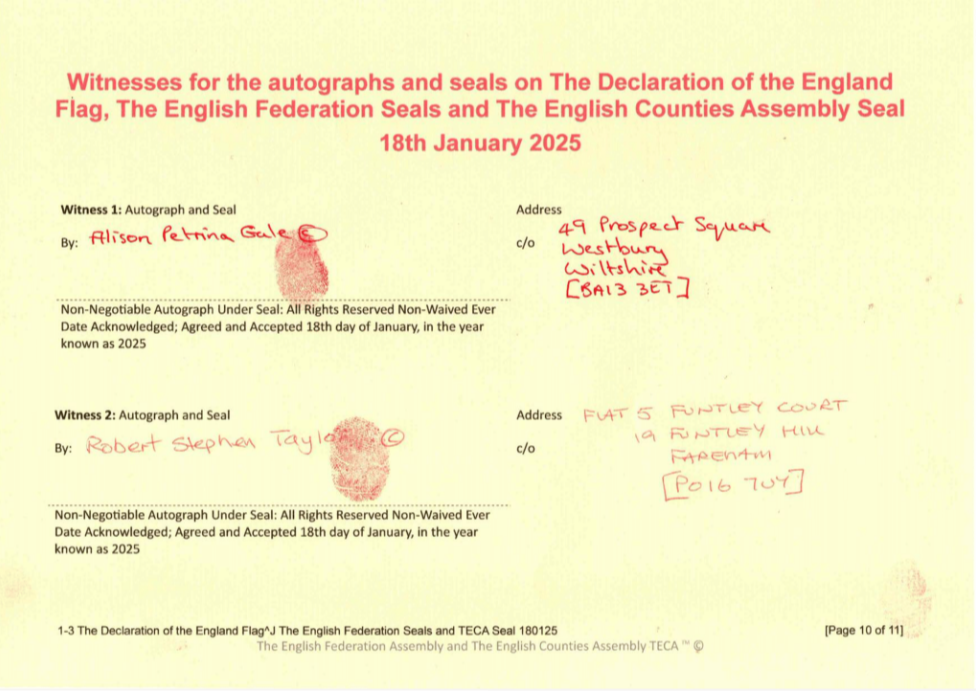 Witnesses for the autographs and seals on The Declaration of the England
Flag, The English Federation Seals and The English Counties Assembly Seal
18th January 2025
Witness 1: Autograph and Seal
By: Alison Petrina Gale ©
Address
c/o
49 Prospect Square
Westbury
Wiltshire
[BA13 3ET]
Non-Negotiable Autograph Under Seal: All Rights Reserved Non-Waived Ever
Date Acknowledged; Agreed and Accepted 18th day of January, in the year
known as 2025
Witness 2: Autograph and Seal
By: Robert Stephen Taylor ©
Address
c/o
FLAT 5 FUNTLEY COURT
19 FUNTLEY HILL
FAREHAM
[PO16 7UY]
Non-Negotiable Autograph Under Seal: All Rights Reserved Non-Waived Ever
Date Acknowledged; Agreed and Accepted 18th day of January, in the year
known as 2025
1-3 The Declaration of the England Flag^J The English Federation Seals and TECA Seal 180125
[Page 10 of 11]
The English Federation Assembly and The English Counties Assembly TECA ™ ©